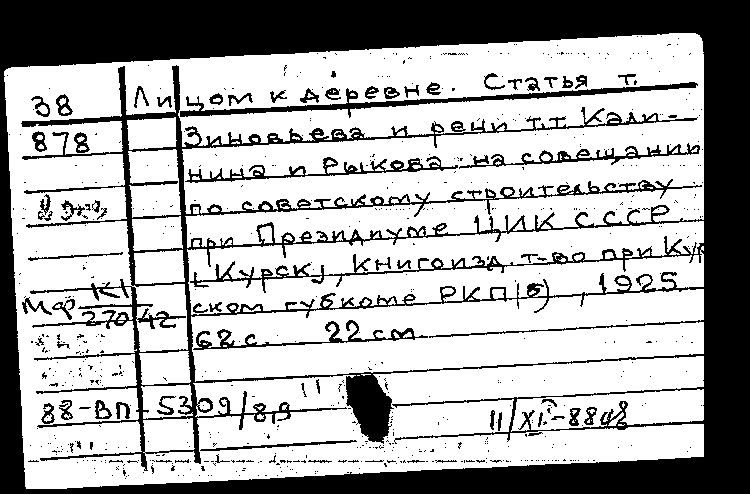 38 Лицом к деревне. Статья т.
878 Зиновьева и речи т.т. Кали-
нина и Рыкова на совещании
2 экз по советскому строительству
при Президиуме ЦИК СССР.
[Курск], Книгоизд. т-во при Кур
Мфр. К1 270/42 ском губкоме РКП(б), 1925
62 с. 22 см
88-ВП-5309/8,9
11/XI-88